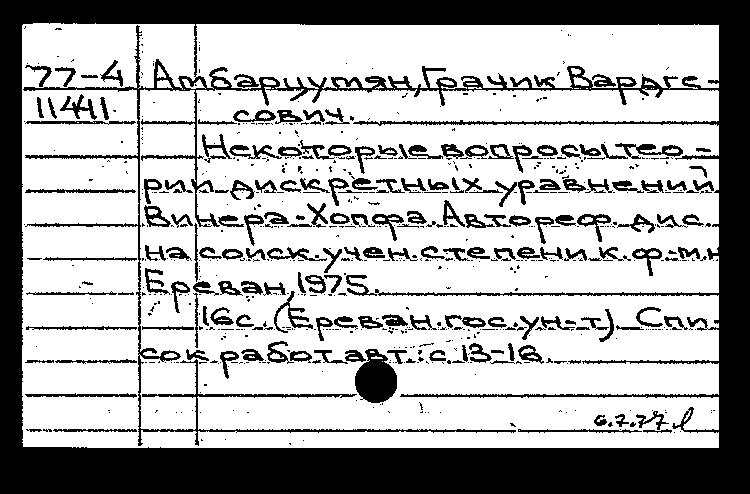 77-4 Амбарцумян, Грачик Вардге-
11441 сович.
Некоторые вопросы тео-
рии дискретных уравнений
Винера-Хопфа. Автореф. дис.
на соиск. учен. степени к. ф-м.н
Ереван, 1975.
16с. (Ереван. гос. ун-т). Спи-
сок работ авт.: с 13-16.
6.7.77